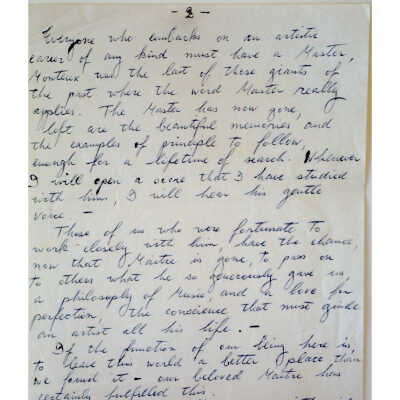 - 2 -
Everyone who embarks on an artistic
career of any kind must have a Master,
Monteux was the last of these giants of
the past where the word Master really
applies. The Master has now gone,
left are the beautiful memories and
the examples of principle to follow,
enough for a lifetime of search. Whenever
I will open a score that I have studied
with him, I will hear his gentle
voice -
Those of us who were fortunate to
work closely with him, have the chance,
now that Maitre is gone, to pass on
to others what he so generously gave us,
a philosophy of Music, and a love for
perfection, the conscience that must guide
an artist all his life. -
If the function of our being here is,
to leave this world a better place than
we found it - our beloved Maitre has
certainly fulfilled this.